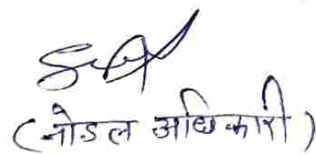 (नोडल अधिकारी)